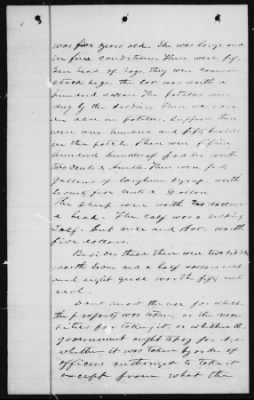 was five years old. She was large and
in fine conditions. There were fif-
teen head of hogs they were common
stock hogs. the lot was worth a
hundred dollars. The potatoes were
dug by the soldiers. There was
an acre in potatoes. Suppose there
were one hundred and fifty bushels
in the patch. There were fifteen
hundred bundles of fodder worth
two cents a bundle. There were forty
gallons of sorghum syrup worth
seventy five cents a gallon
The sheep were worth two dollars
a head. The calf was a sucking
calf. but nice and fat. worth
five dollars.
Besides these there were two
worth and a half dollars
and eight geese worth fifty cents
each.
I dont know the use for which
the property was taken, or the neces-
sities for taking it, or whether the
government ought to pay for it, or
whether it was taken by order of
officers authorized to take it
except from what the